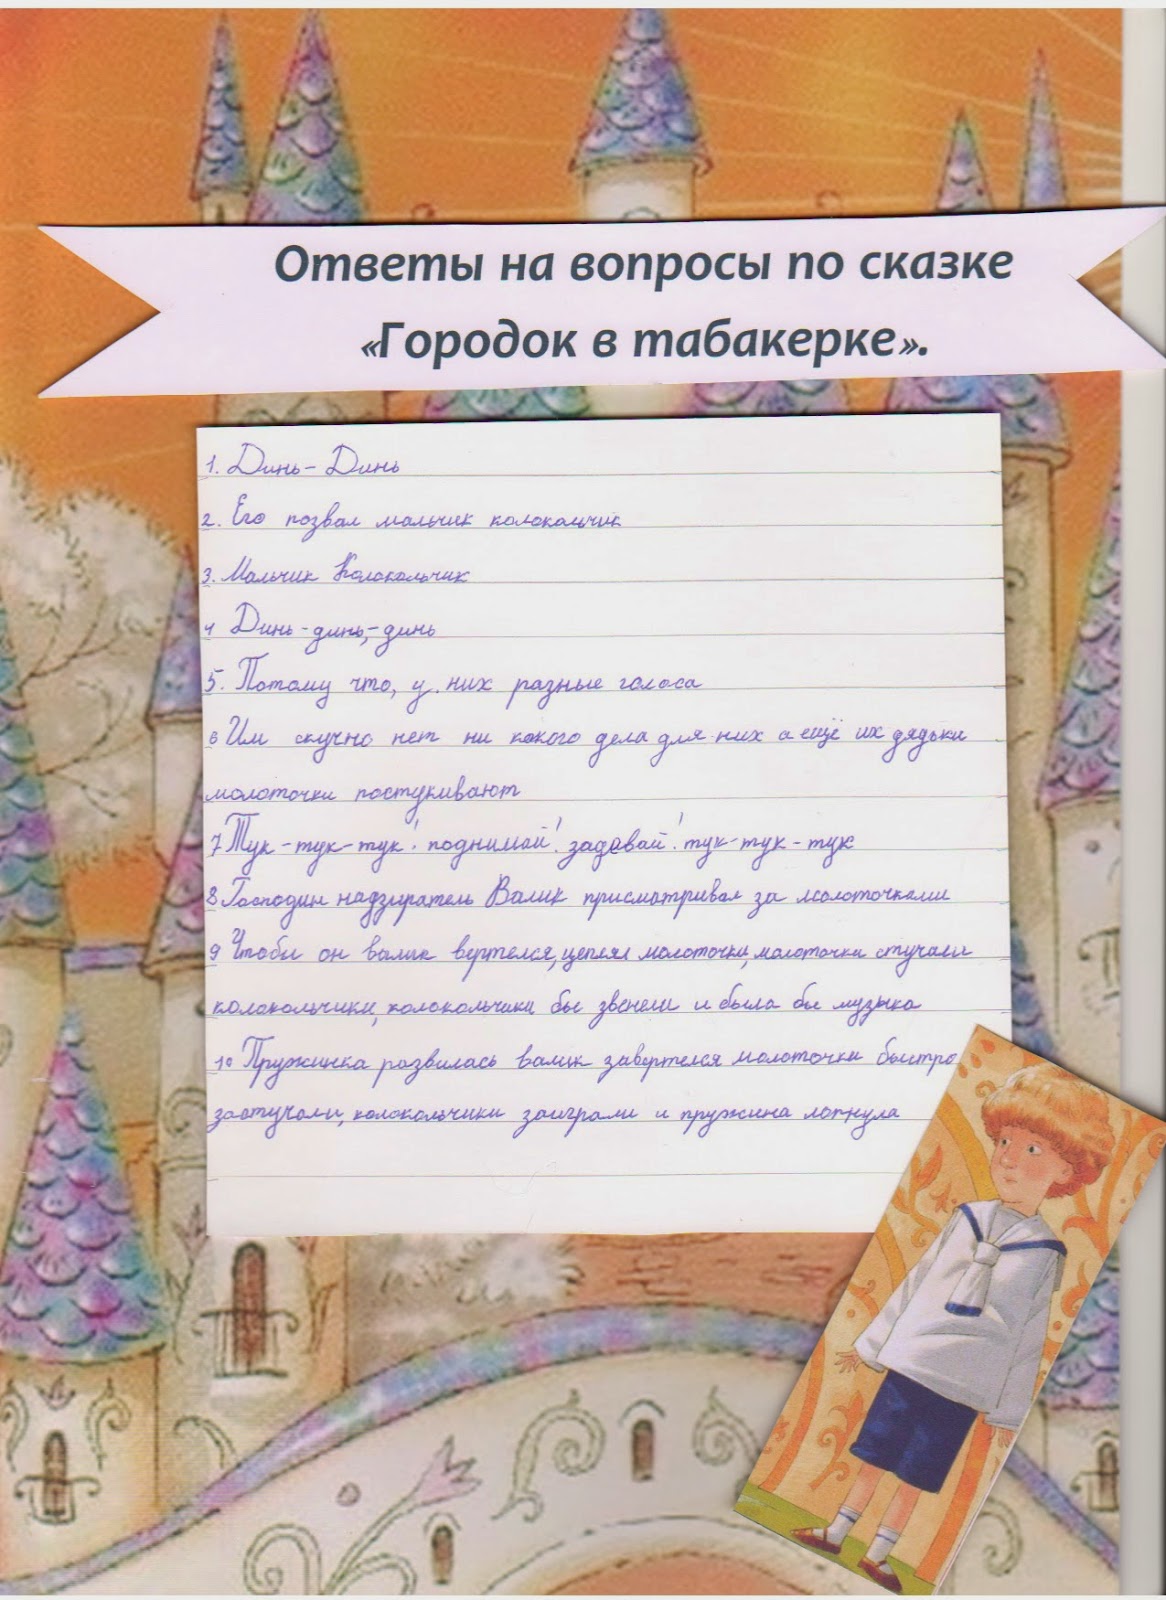 Ответы на вопросы по сказке
«Городок в табакерке».
1. Динь - Динь
2. Его позвал мальчик колокольчик
3. Мальчик Колокольчик
4 Динь-динь,-динь
5. Потому что, у них разные голоса
6 Им скучно нет ни какого дела для них а ещё их дядьки
молоточки постукивают
7 Тук-тук-тук! поднимай! задевай! тук-тук-тук
8 Господин надзиратель Валик присматривал за молоточками
9 Чтобы он валик вертелся, цеплял молоточки, молоточки стучали
колокольчики, колокольчики бы звенели и была бы музыка
10 Пружинка развилась валик завертелся молоточки быстро
застучали, колокольчики заиграли и пружина лопнула